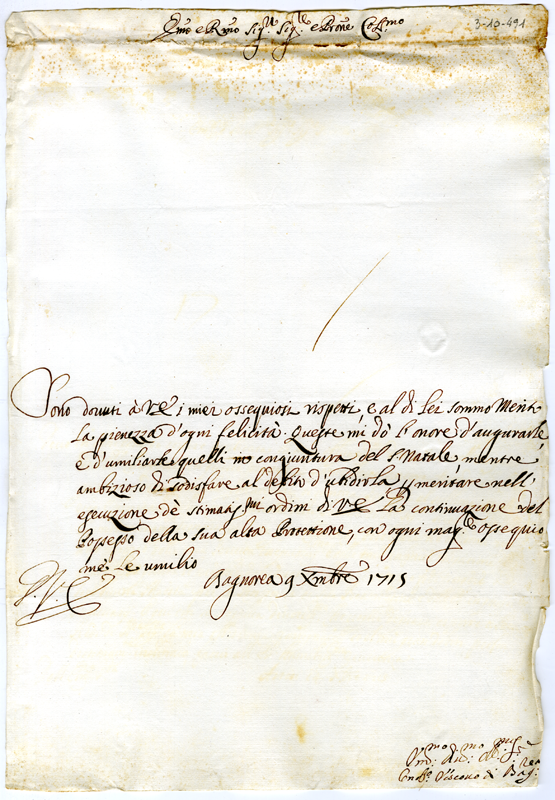 Emo e Rmo Sigr. Sigr. e Prone Colmo
3-13-491
Sono dovuti à VE i miei ossequiosi rispetti, e al di Lei sommo Merito
la pienezza d'ogni felicità. Queste mi dò l'onore d'augurarle
e d'umiliarle quelli in congiuntura del S. Natale, mentre
ambizioso di sodisfare al debito d'ubidirla, e meritare nell'
esecuzione dè stimatis.mi ordini di VE la continuazione del
Possesso della sua alta Protettione, con ogni mag.re ossequio
me le umilio
Bagnorea 9 Xmbre 1715
V. E.
Vescovo di Bag.rea